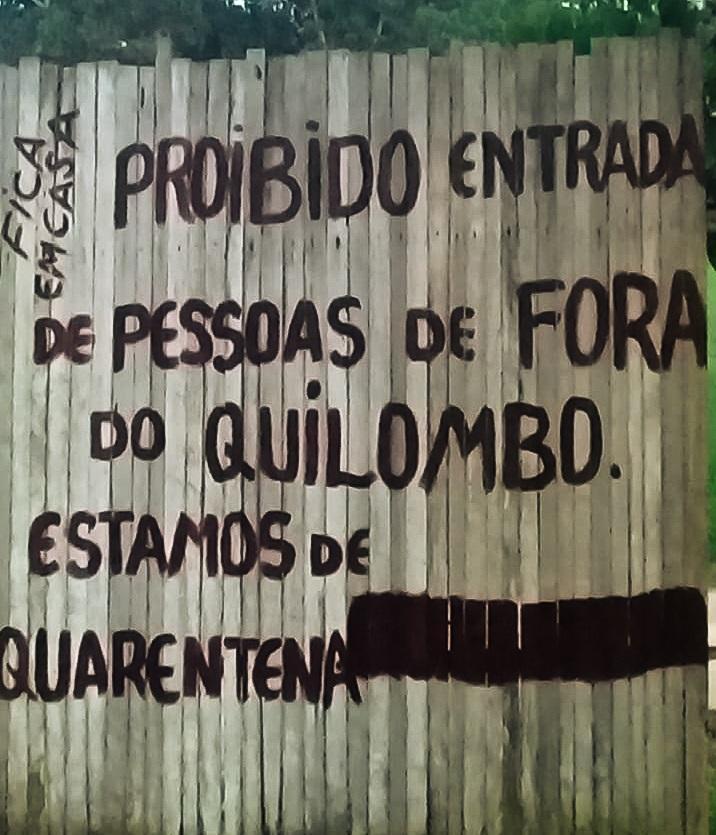 FiCA
EM CASA
PROiBiDO ENTRADA
DE PESSOAS DE FORA
DO QUiLOMBO.
ESTAMOS DE
QUARENTENA